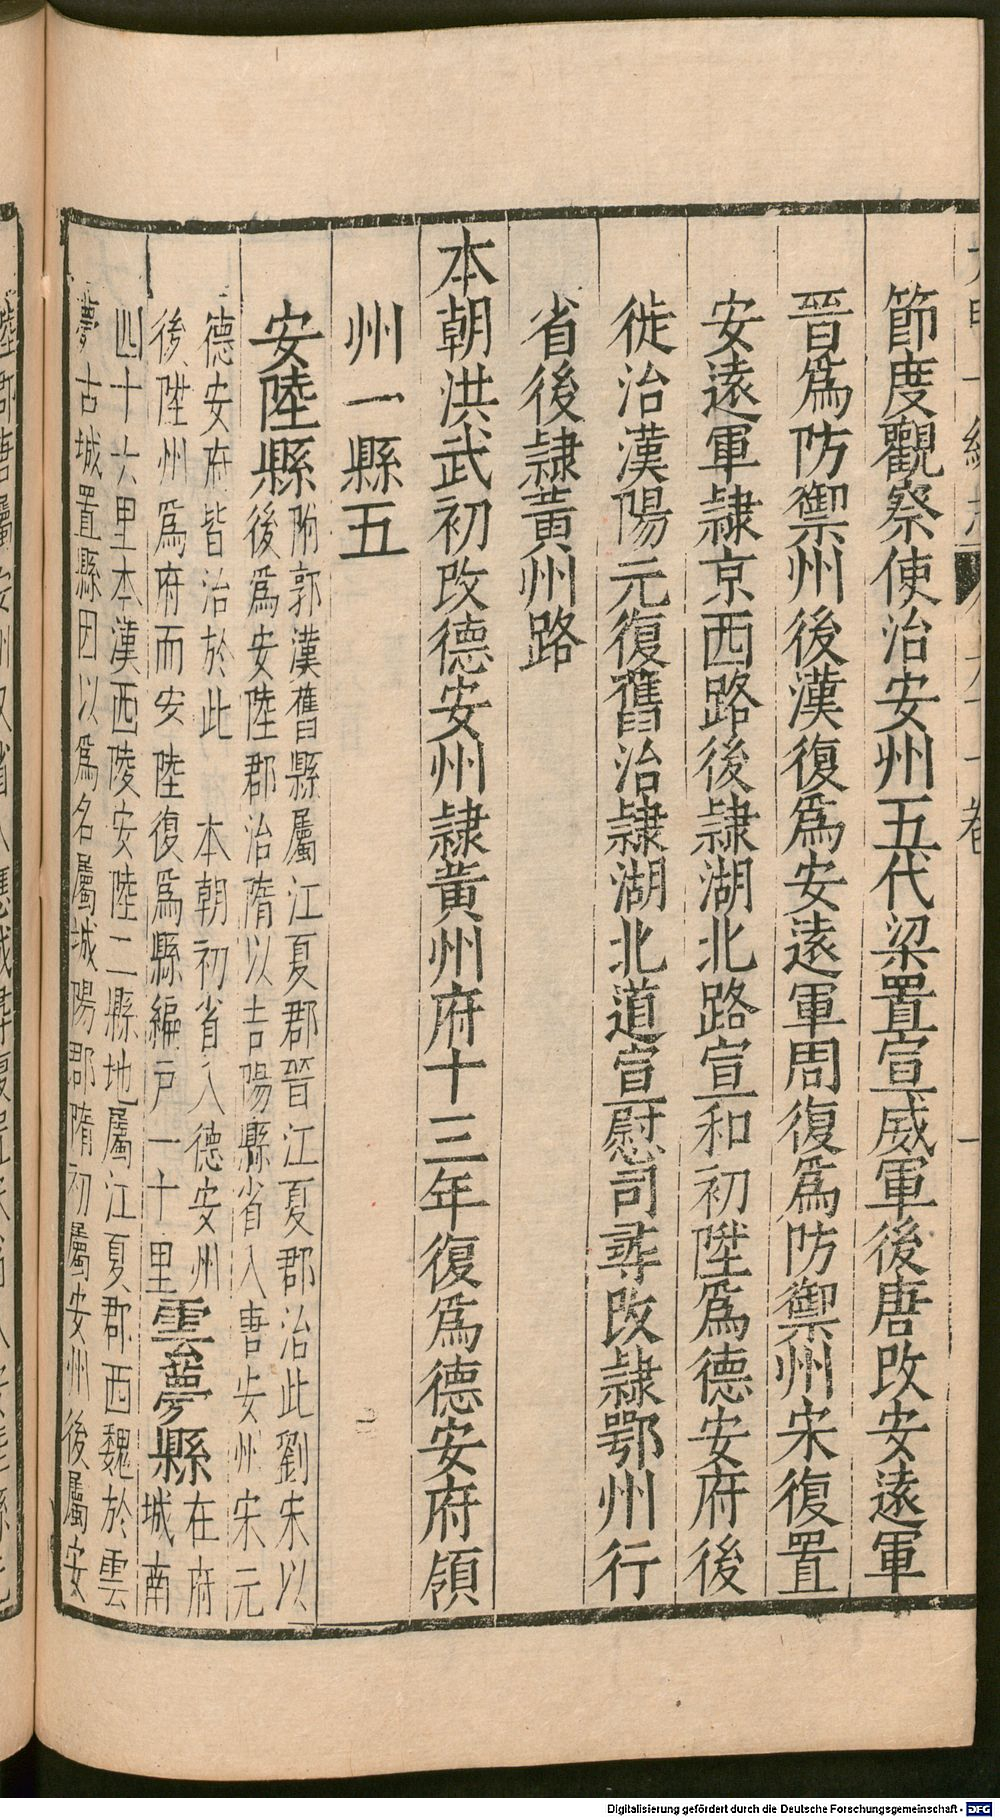 節度觀察使治安州五代梁置宣威軍後唐改安遠軍
晉爲防禦州後漢復爲安遠軍周復爲防禦州宋復置
安遠軍隷京西路後隷湖北路宣和初陞爲德安府後
徙治漢陽元復舊治隷湖北道宣慰司尋改隷鄂州行
省後隷黃州路
本朝洪武初改德安州隷黃州府十三年復爲德安府領
州一縣五
安陸縣
附郭漢舊縣屬江夏郡晉江夏郡治此劉宋以
後爲安陸郡治隋以吉陽縣省入唐安州宋元
德安府皆治於此 本朝初省入德安州
後陞州爲府而安陸復爲縣編戸一十里
雲夢縣
在府
城南
四十六里本漢西陵安陸二縣地屬江夏郡西魏於雲
夢古城置縣因以爲名屬城陽郡隋初屬安州後屬安
Digitalisierung gefördert durch die Deutsche Forschungsgemeinschaft - DFG